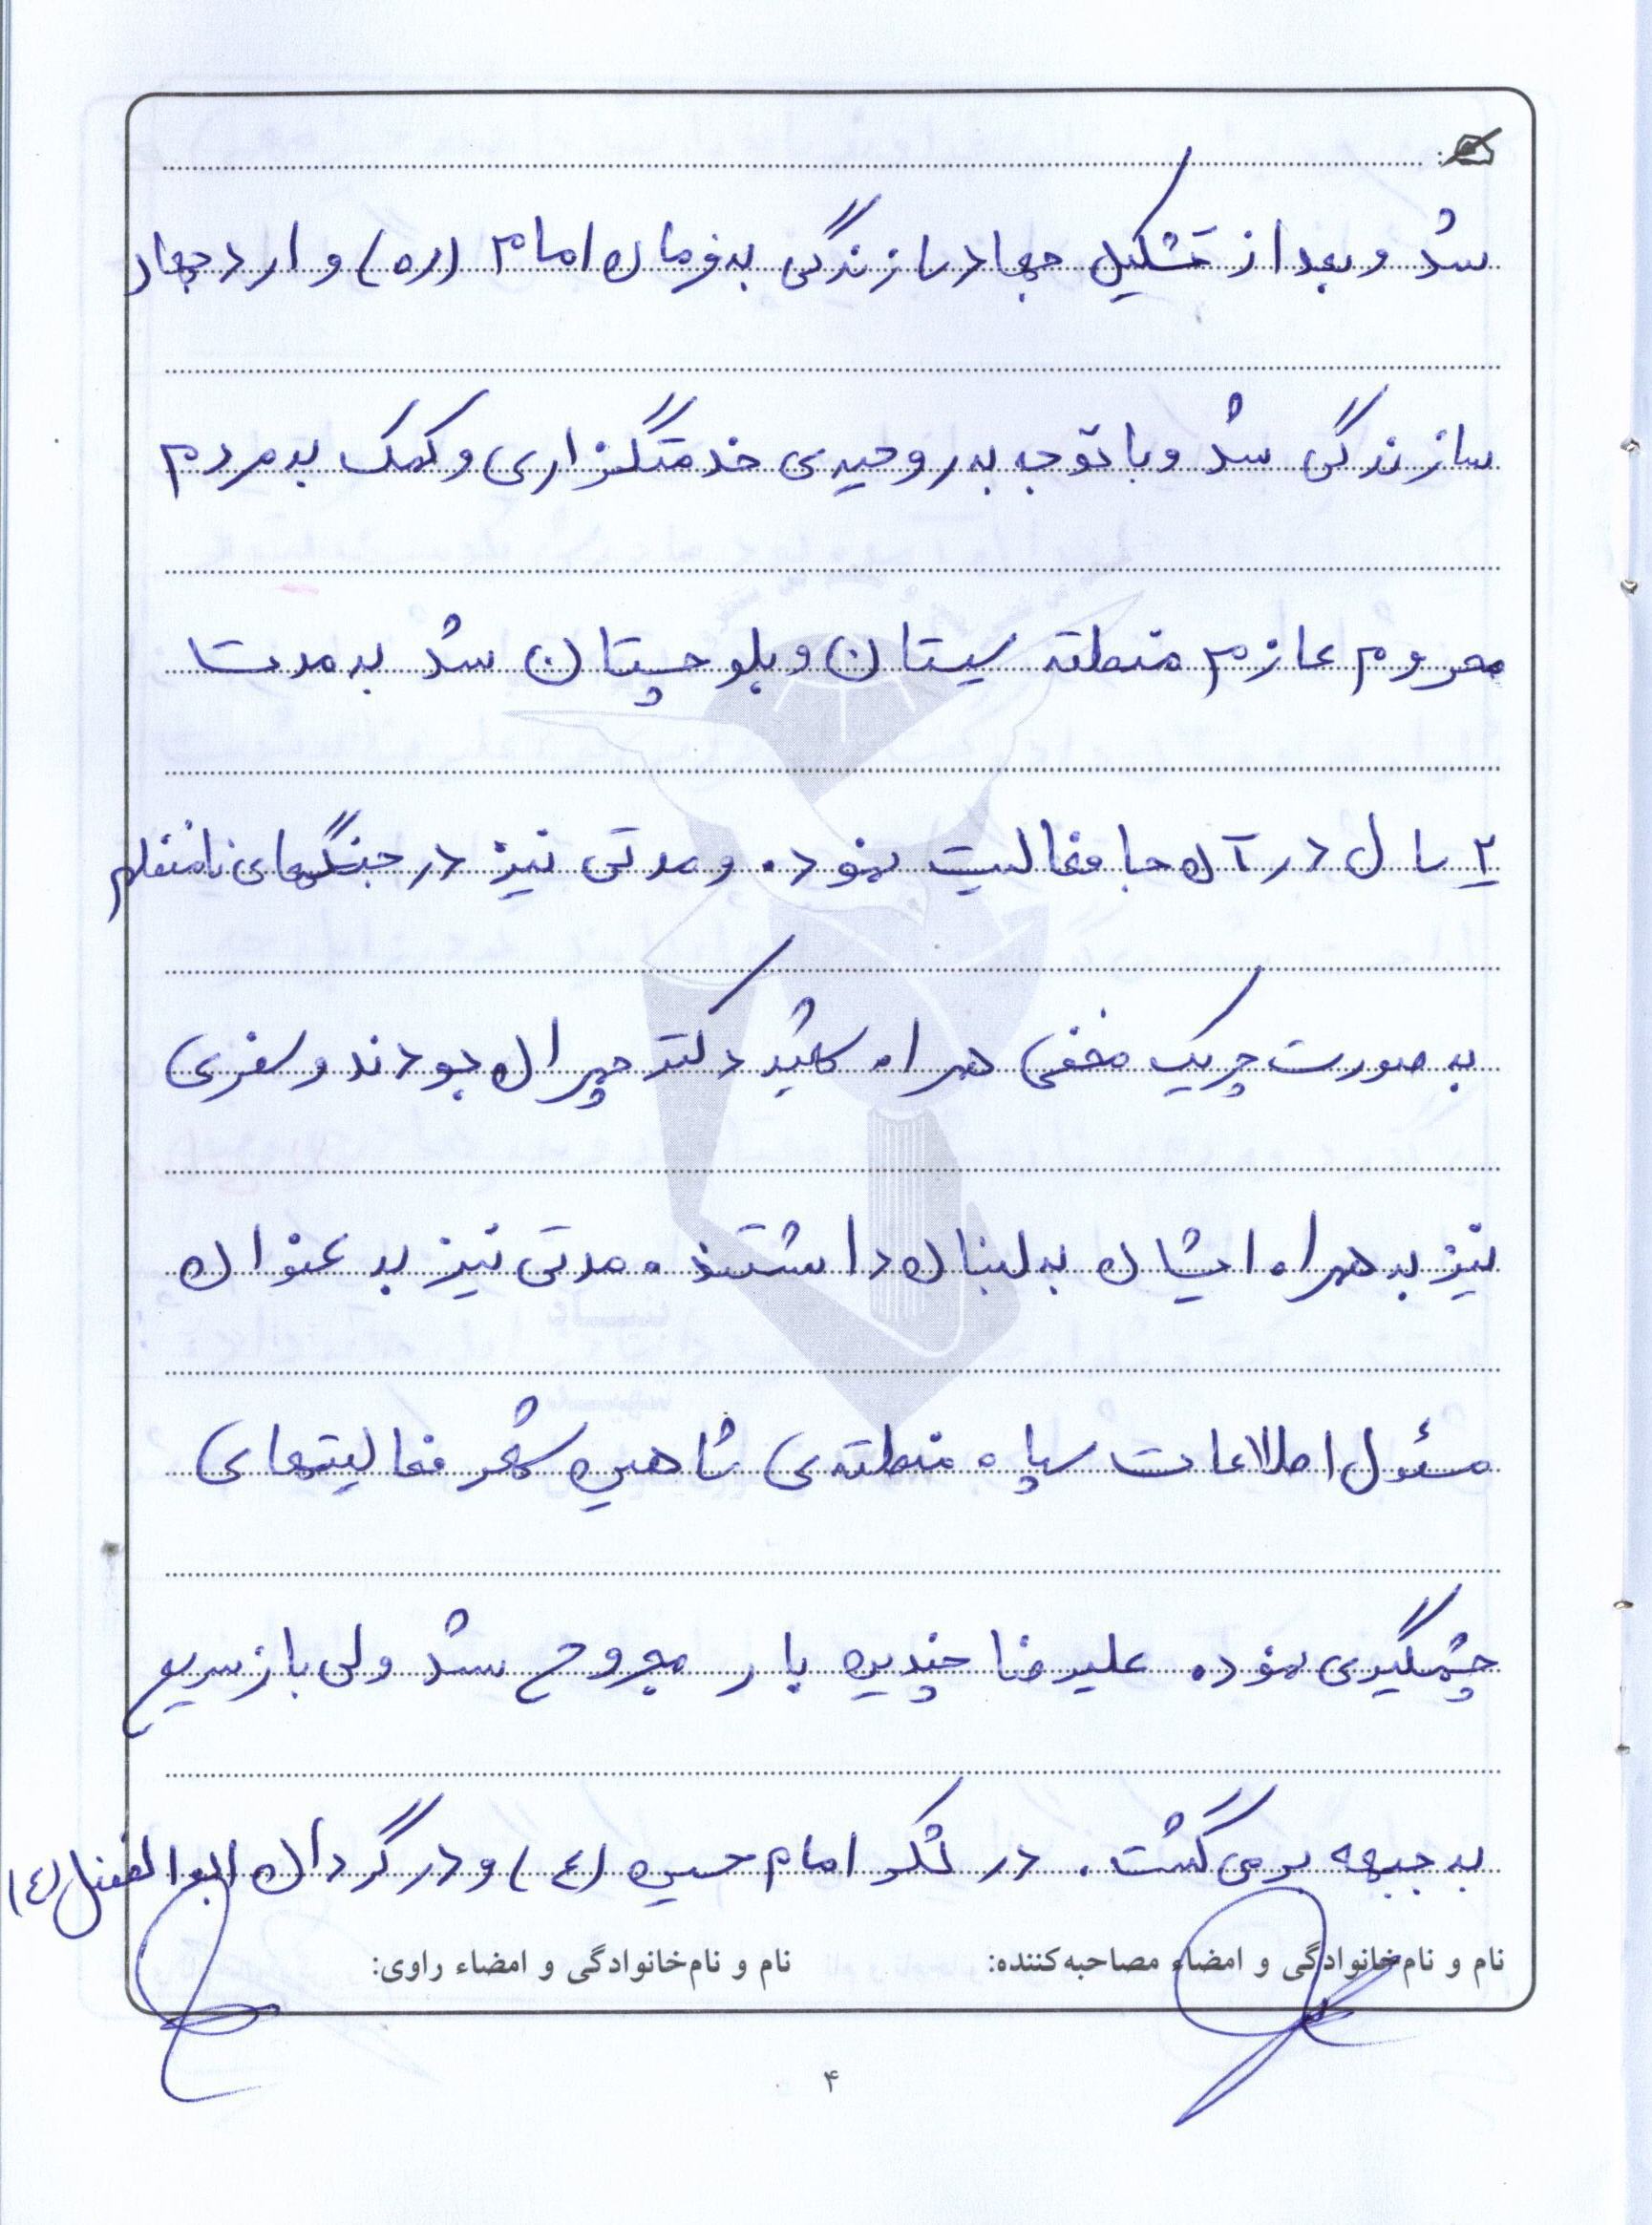 شد و بعد از تشکیل جهاد سازندگی به فرمان امام (ره) وارد جهاد
سازندگی شد و با توجه به روحیه‌ی خدمتگزاری و کمک به مردم
محروم عازم منطقه سیستان و بلوچستان شد به مدت
۲ سال در آن جا فعالیت نمود. و مدتی نیز در جنگهای نامنظم
به صورت چریک مخفی همراه شهید دکتر چمران بودند و سفری
نیز به همراه ایشان به لبنان داشتند. مدتی نیز به عنوان
مسئول اطلاعات سپاه منطقه‌ی شاهین شهر فعالیتهای
چشمگیری نمود. علیرضا چندین بار مجروح شد ولی باز سریع
به جبهه برمی گشت. در لشکر امام حسین (ع) و در گردان ابوالفضل (ع)
نام و نام‌خانوادگی و امضاء مصاحبه‌کننده: نام و نام‌خانوادگی و امضاء راوی:
۴